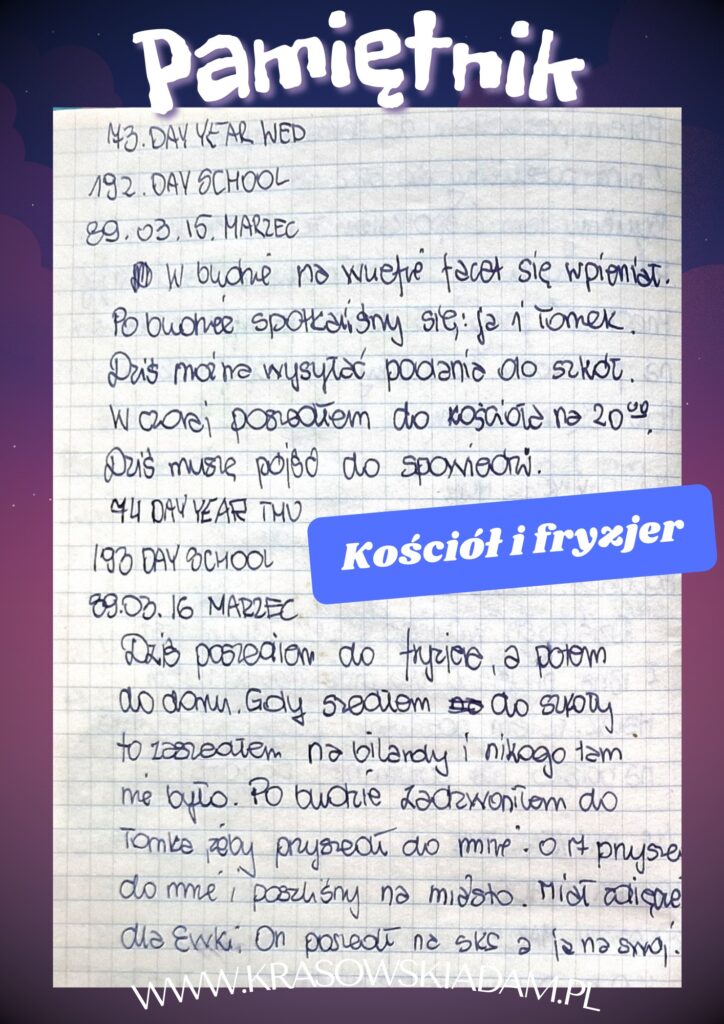 Pamiętnik
73. DAY YEAR WED
192. DAY SCHOOL
89.03.15. MARZEC
W budzie na wuefie facet się wpieniał.
Po budzie spotkaliśmy się: ja i Tomek.
Dziś można wysyłać podania do szkół.
Wczoraj poszedłem do kościoła na 20⁰⁰.
Dziś muszę pójść do spowiedzi.
74 DAY YEAR THU
193 DAY SCHOOL
Kościół i fryzjer
89.03.16 MARZEC
Dziś poszedłem do fryzjera, a potem
do domu. Gdy szedłem do szkoły
to zaszedłem na bilardy i nikogo tam
nie było. Po budzie zadzwoniłem do
Tomka, żeby przyszedł do mnie. O 17 przysze
do mnie i poszliśny na miasto. Miał
dla Ewki. On poszedł na sks a ja na swój.
WWW.KRASOWSKIADAM.PL